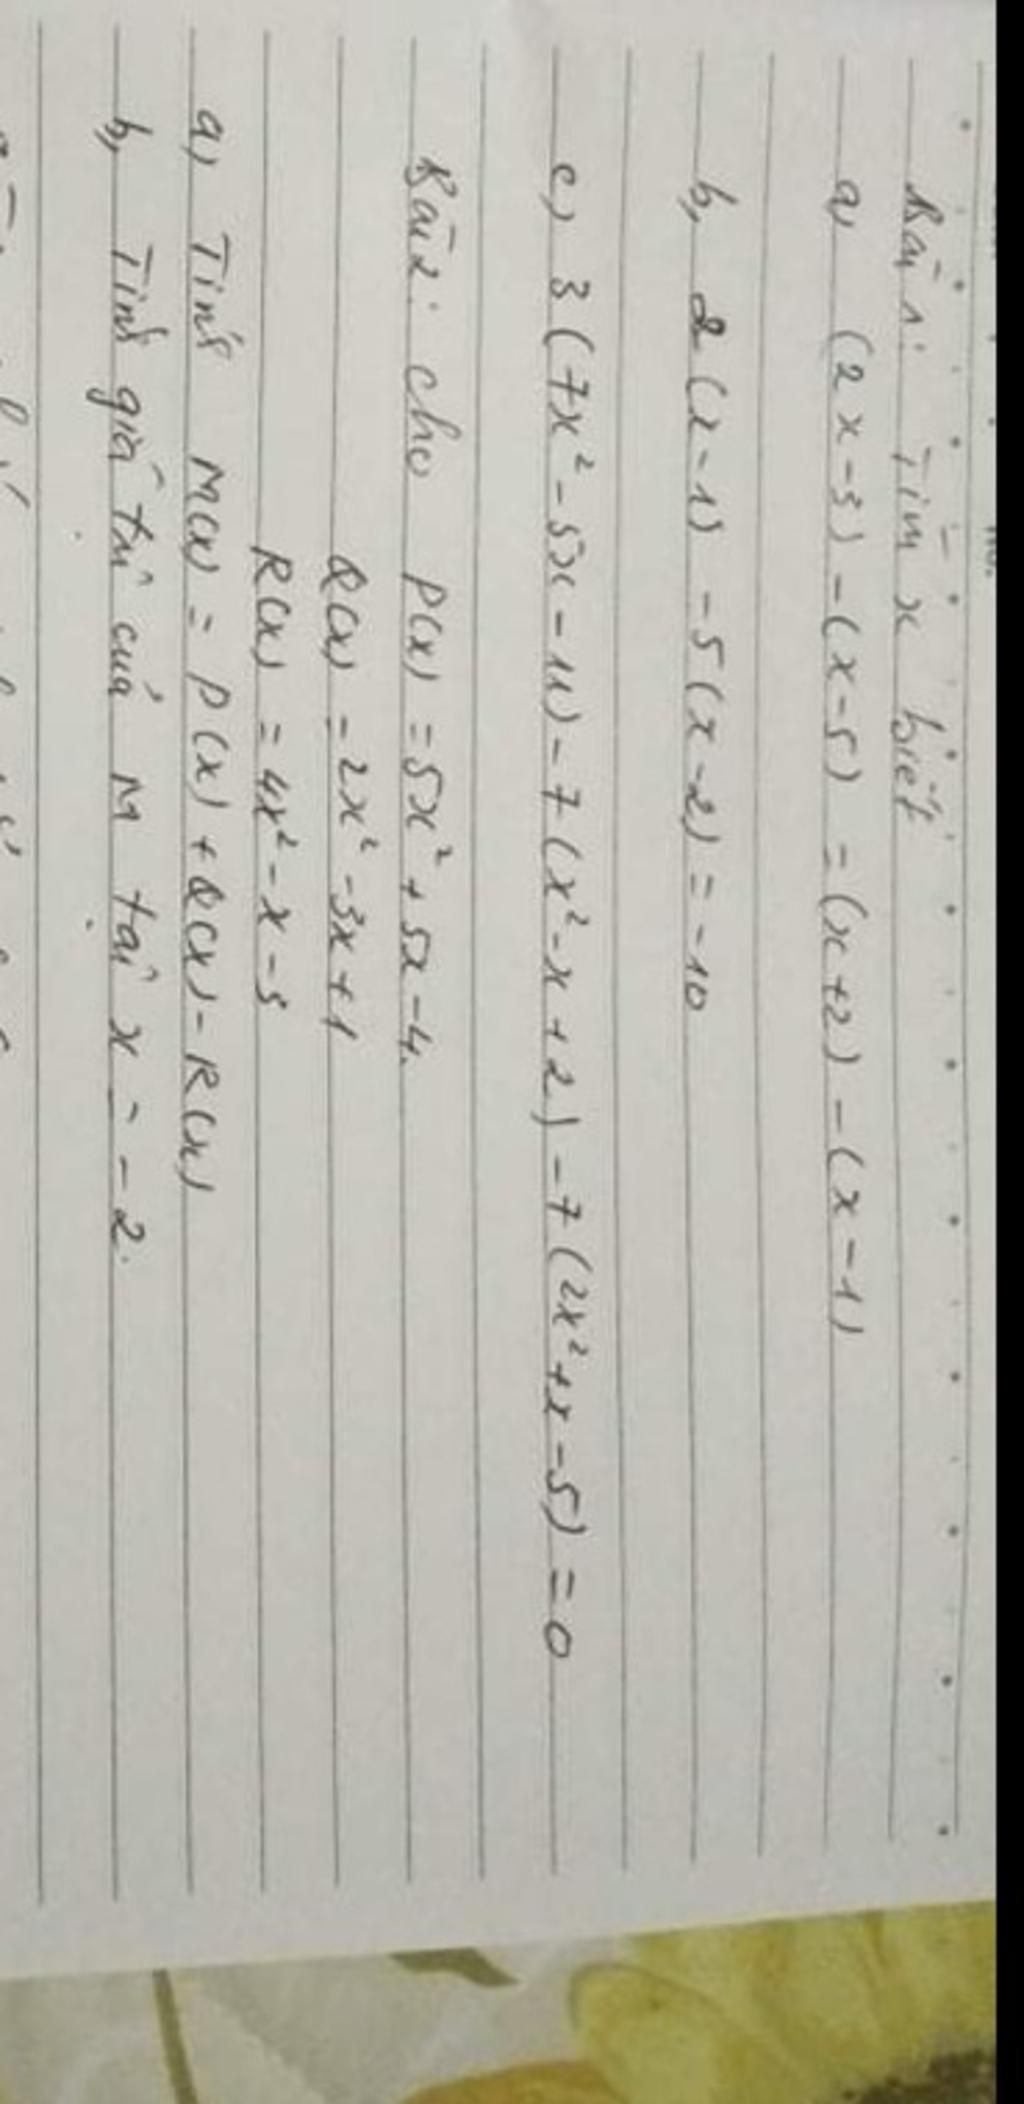 Bài 1: Tìm x biết
a, (2x-3)-(x-5) = (x+2)-(x-1)
b, 2(x-1)-5(x-2) = -10
c, 3(7x²-5x-11)-7(x²-x+2)-7(2x²+x-5) = 0
Bài 2: Cho P(x) = 5x²+5x-4.
Q(x) = 2x²-3x+1
R(x) = 4x²-x-3
a, Tính M(x) = P(x)+Q(x)-R(x)
b, Tính giá trị của M tại x = -2.